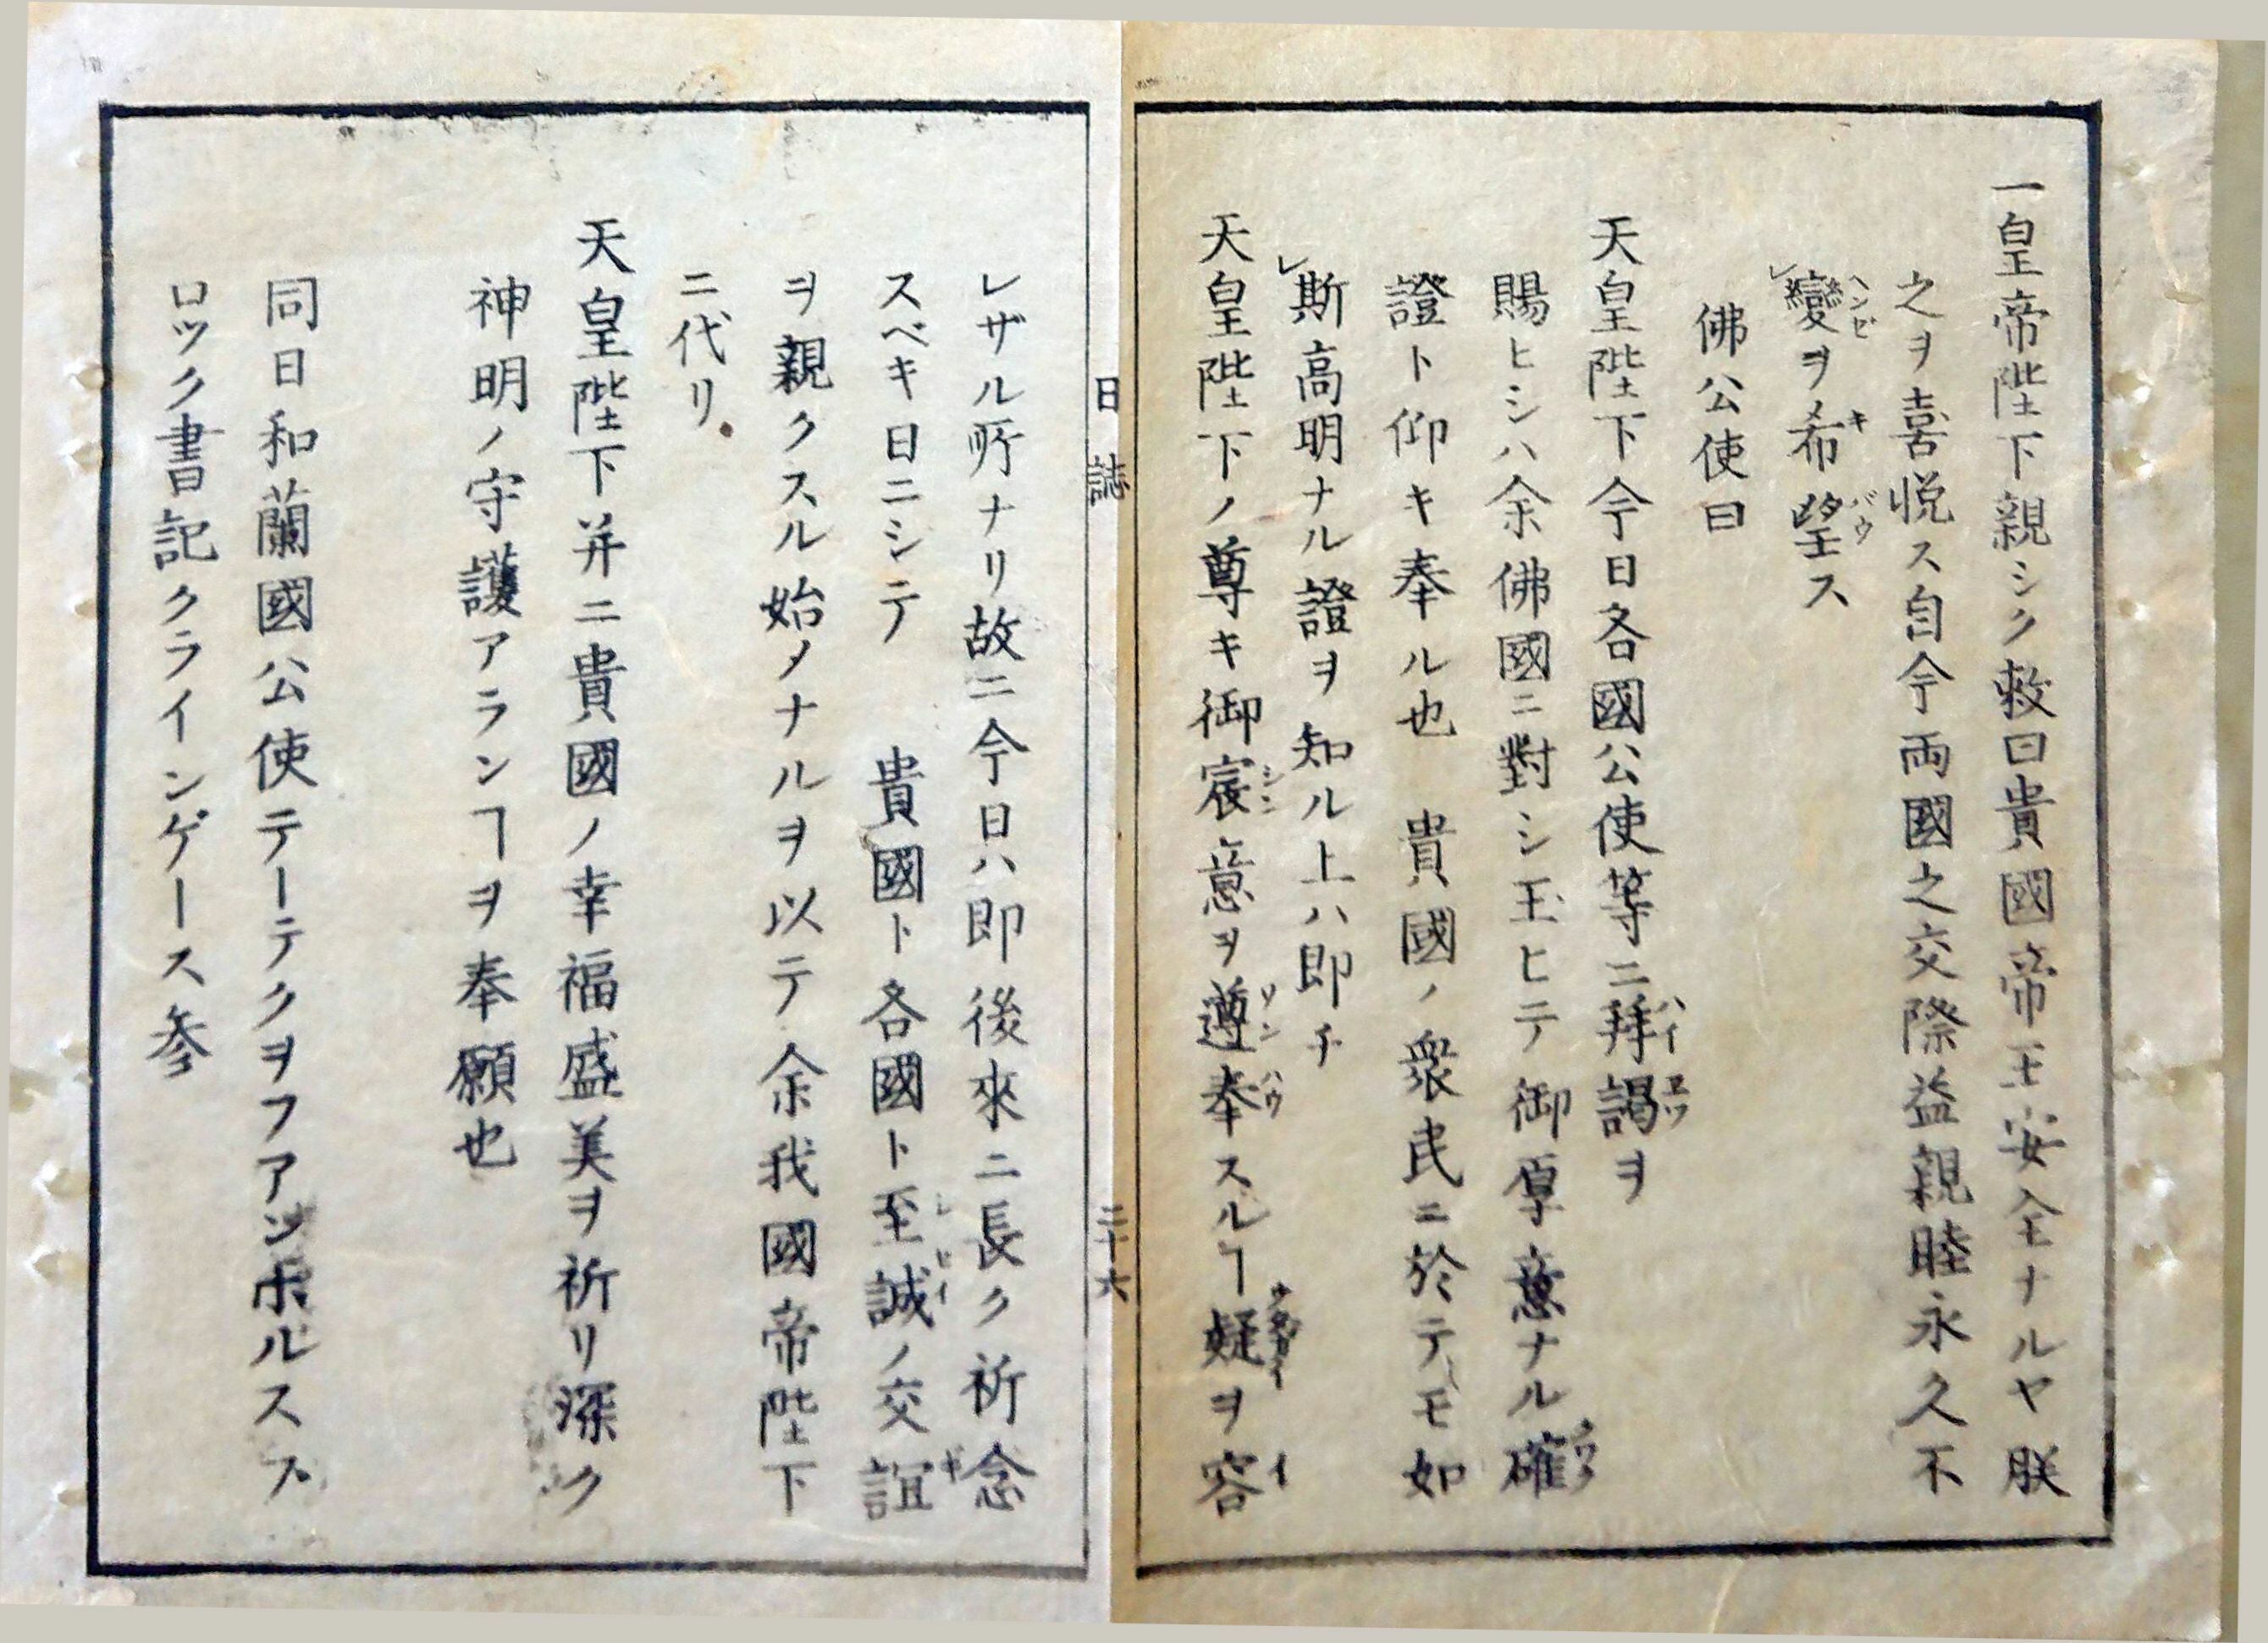 一皇帝陛下親シク敕曰貴國帝王安全ナルヤ朕
之ヲ喜悦ス自今両國之交際益親睦永久不
變ヲ希望ス
佛公使曰
天皇陛下今日各國公使等ニ拜謁ヲ
賜ヒシハ余佛國ニ對シ玉ヒテ御厚意ナル確
證ト仰キ奉ル也　貴國ノ衆民ニ於テモ如
斯高明ナル證ヲ知ル上ハ即チ
天皇陛下ノ尊キ御宸意ヲ遵奉スルヿ疑ヲ容
日誌　二十六
レザル所ナリ故ニ今日ハ即後來ニ長ク祈念
スベキ日ニシテ　貴國ト各國ト至誠ノ交誼
ヲ親クスル始メナルヲ以テ余我國帝陛下
ニ代リ
天皇陛下并ニ貴國ノ幸福盛美ヲ祈リ深ク
神明ノ守護アランヿヲ奉願也
同日和蘭國公使デーデクヲフアンポルスブ
ロック書記クラインゲース参